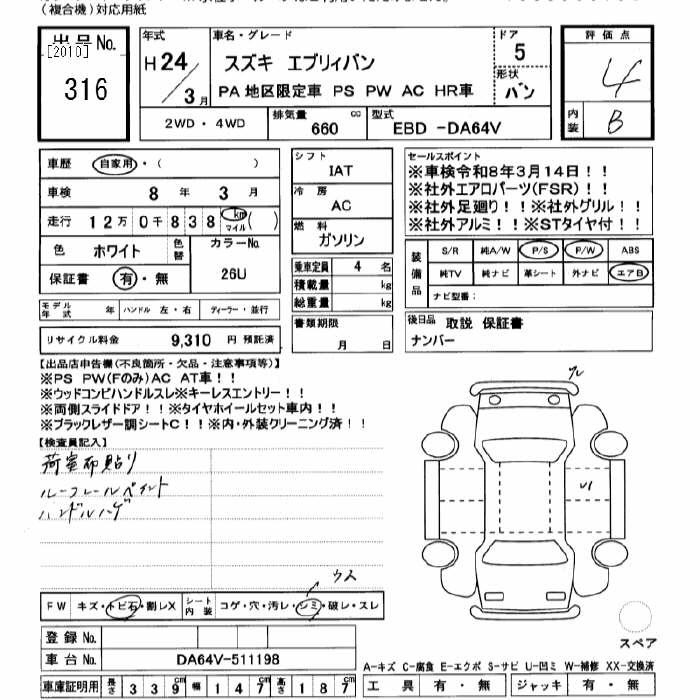 （複合機）対応用紙
出品No.
[2010]
316
年式
H24/3月
車名・グレード
スズキ エブリィバン
PA 地区限定車 PS PW AC HR車
ドア
5
形状
バン
評価点
4
内装
B
2WD・4WD
排気量 660 cc
型式 EBD -DA64V
車歴 自家用・( )
車検 8年 3月
走行 12万0千838 km マイル ( )
色 ホワイト 色替 カラーNo.
保証書 有・無 26U
モデル年式 年 ハンドル 左・右 ディーラー・並行
リサイクル料金 9,310 円 預託済
シフト
IAT
冷房
AC
燃料
ガソリン
乗車定員 4 名
積載量 kg
総重量 kg
書類期限
月 日
セールスポイント
※車検令和8年3月14日！！
※社外エアロパーツ(FSR)！！
※社外足廻り！！※社外グリル！！
※社外アルミ！！※STタイヤ付！！
装備品
S/R 純A/W P/S P/W ABS
純TV 純ナビ 革シート 外ナビ エアB
ナビ型番：
後日品 取説 保証書
ナンバー
【出品店申告欄(不良箇所・欠品・注意事項等)】
※PS PW(Fのみ)AC AT車！！
※ウッドコンビハンドルスレ※キーレスエントリー！！
※両側スライドドア！！※タイヤホイールセット車内！！
※ブラックレザー調シートC！！※内・外装クリーニング済！！
【検査員記入】
荷室布貼り
ルーフレールペイント
ハンドルハゲ
ウス
FW キズ・トビ石・割レX シート内装 コゲ・穴・汚レ・シミ・破レ・スレ
登録 No.
車台 No. DA64V-511198
車庫証明用 長さ 339cm 幅 147cm 高さ 187cm
U1
スペア
A-キズ C-腐食 E-エクボ S-サビ U-凹ミ W-補修 XX-交換済
工具 有・無 ジャッキ 有・無